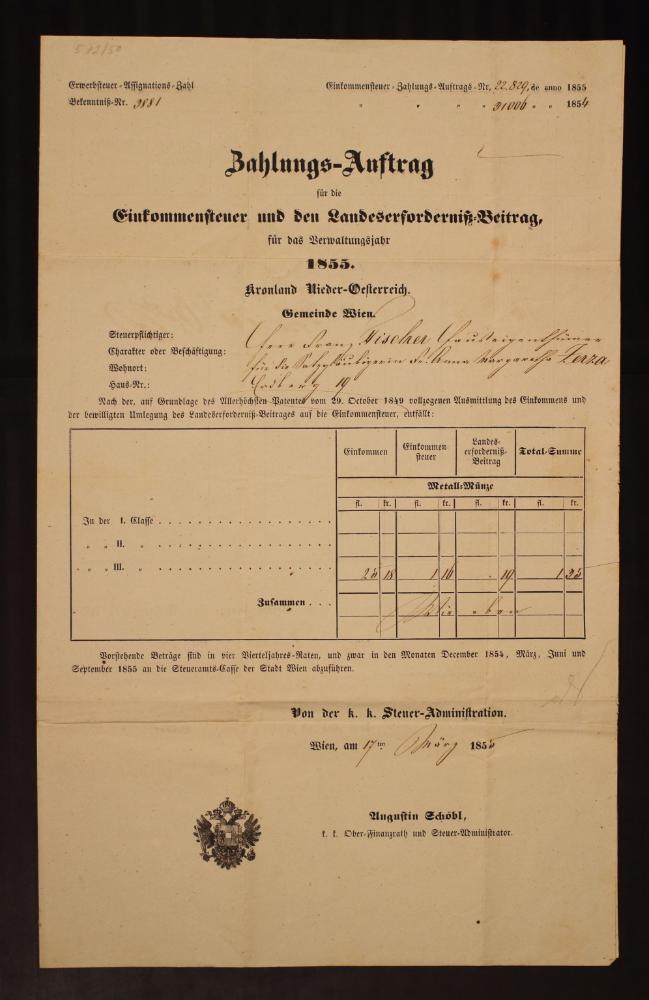 512/50
Erwerbsteuer-Assignations-Zahl
Einkommensteuer-Zahlungs-Auftrags-Nr. 22.829 de anno 1855
Bekenntniß-Nr. 3881
" " " 31006 " " 1854
Zahlungs-Auftrag
für die
Einkommensteuer und den Landeserforderniß-Beitrag,
für das Verwaltungsjahr
1855.
Kronland Nieder-Oesterreich.
Gemeinde Wien.
Steuerpflichtiger: Herr Franz Mischer Hauseigenthümer
Charakter oder Beschäftigung: für die Anna Margaretha Lerza
Wohnort:
Haus-Nr.: Erdberg 19
Nach der, auf Grundlage des Allerhöchsten Patentes vom 29. October 1849 vollzogenen Ausmittlung des Einkommens und
der bewilligten Umlegung des Landeserforderniß-Beitrages auf die Einkommensteuer, entfällt:
Einkommen Einkommensteuer Landeserforderniß-Beitrag Total-Summe
Metall-Münze
fl. kr. fl. kr. fl. kr. fl. kr.
In der I. Classe
" " II. "
" " III. " 25 18 1 16 . 19 1 35
Zusammen . . . Wie oben
Vorstehende Beträge sind in vier Vierteljahres-Raten, und zwar in den Monaten December 1854, März, Juni und
September 1855 an die Steueramts-Casse der Stadt Wien abzuführen.
Von der k. k. Steuer-Administration.
Wien, am 17ten März 1855
Augustin Schöbl,
k. k. Ober-Finanzrath und Steuer-Administrator.